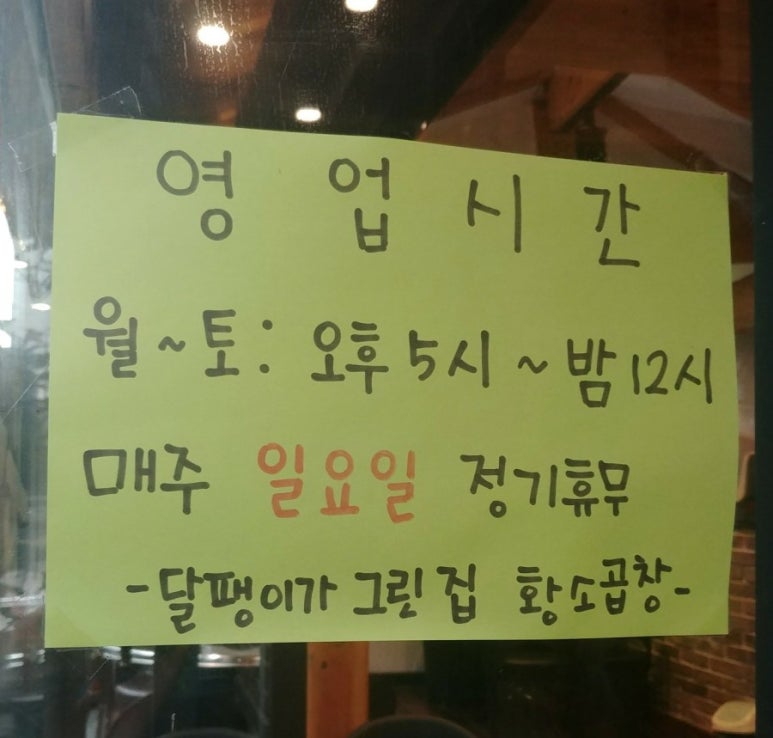 영업시간
월~토: 오후 5시 ~ 밤 12시
매주 일요일 정기휴무
-달팽이가 그린 집 황소곱창-